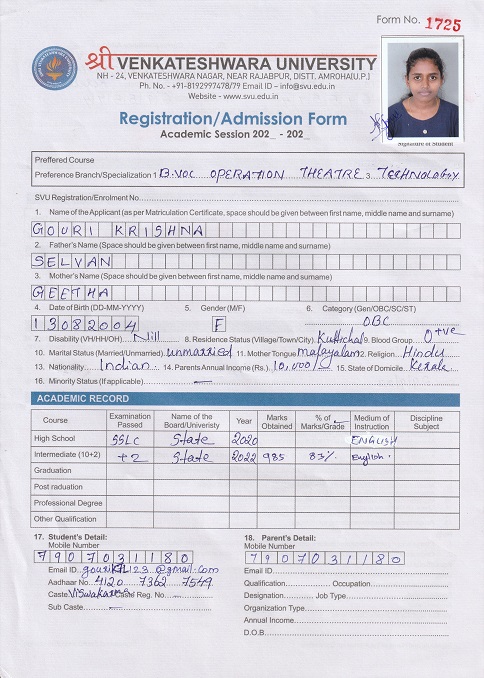 Form No. 1725
श्री VENKATESHWARA UNIVERSITY
NH - 24, VENKATESHWARA NAGAR, NEAR RAJABPUR, DISTT. AMROHA(U.P.)
Ph. No. - +91-8192997478/79 Email ID - info@svu.edu.in
Website - www.svu.edu.in
Registration/Admission Form
Academic Session 202_ - 202_
Signature of Student
Preffered Course
Preference Branch/Specialization 1 B.VOC OPERATION THEATRE 3. TECHNOLOGY
SVU Registration/Enrolment No.
1. Name of the Applicant (as per Matriculation Certificate, space should be given between first name, middle name and surname)
GOURI KRISHNA
2. Father's Name (Space should be given between first name, middle name and surname)
SELVAN
3. Mother's Name (Space should be given between first name, middle name and surname)
GEETHA
4. Date of Birth (DD-MM-YYYY) 5. Gender (M/F) 6. Category (Gen/OBC/SC/ST)
13082004 F OBC
7. Disability (VH/HH/OH) Nill 8. Residence Status (Village/Town/City) Kuttichal 9. Blood Group O+ve
10. Marital Status (Married/Unmarried) unmarried 11. Mother Tongue malayalam 12. Religion Hindu
13. Nationality Indian 14. Parents Annual Income (Rs.) 10,000 15. State of Domicile Kerala
16. Minority Status (If applicable)
ACADEMIC RECORD
Course Examination Passed Name of the Board/Univeristy Year Marks Obtained % of Marks/Grade Medium of Instruction Discipline Subject
High School SSLC State 2020 ENGLISH
Intermediate (10+2) +2 State 2022 985 83% English
Graduation
Post raduation
Professional Degree
Other Qualification
17. Student's Detail:
Mobile Number
7907031180
Email ID
Aadhaar No. 4120 7362 7549
Caste Viswakarma Caste Reg. No.
Sub Caste
18. Parent's Detail:
Mobile Number
7907031180
Email ID
Qualification Occupation
Designation Job Type
Organization Type
Annual Income
D.O.B.